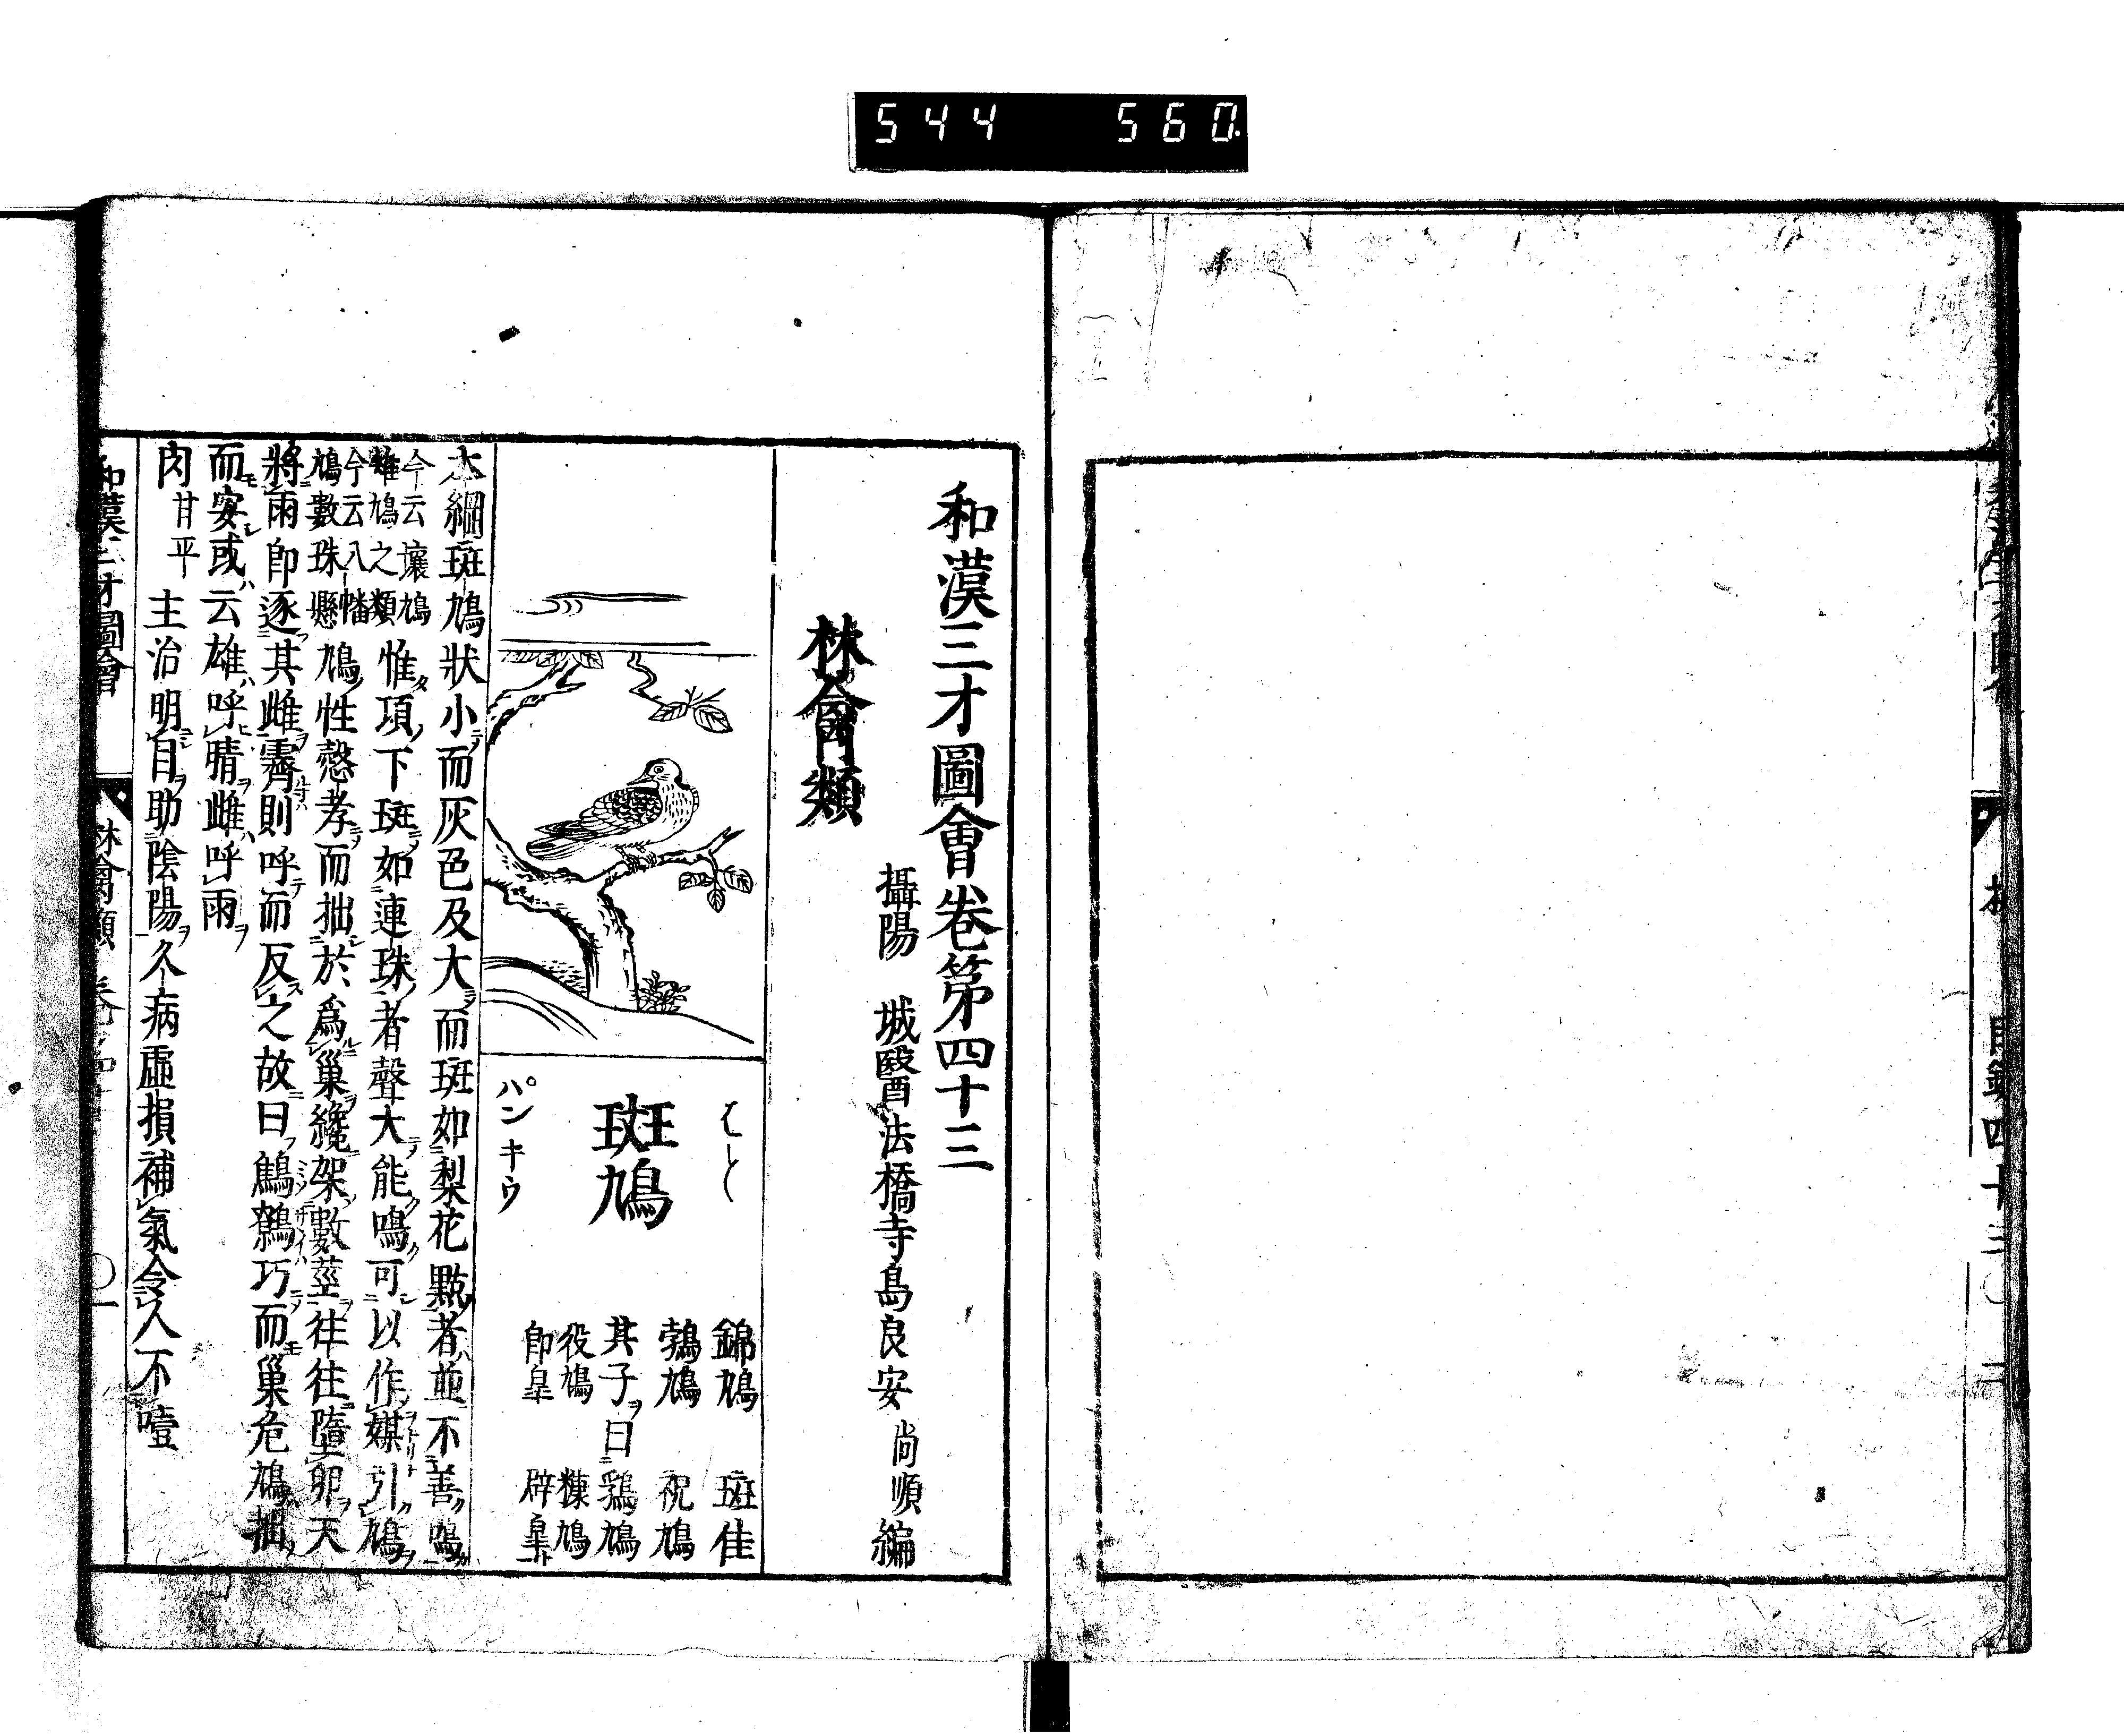 544 560
和漢三才圖會卷第四十三
攝陽 城醫法橋寺島良安尚順編
林禽類
はと
斑鳩
パンキウ
錦鳩 斑隹
鵓鳩 祝鳩
其子ヲ曰鶉鳩
役鳩 糠鳩
卽皐 辟皐
本綱斑鳩狀小而灰色及大而斑如梨花點者並不善鳴
今云壤鳩
雉鳩之類
惟項下斑如連珠者聲大能鳴可以作媒引鳩
今云八幡
鳩數珠懸
鳩性慤孝而拙於爲巢纔架數莖往往墮卵天
將雨卽逐其雌霽則呼而反之故曰鷦鷯巧而巢危鳩拙
而安或云雄呼晴雌呼雨
肉甘平 主治明目助陰陽久病虛損補氣令人不噎
和漢三才圖會 林禽類 卷ノ四十 〇一
目錄四十三